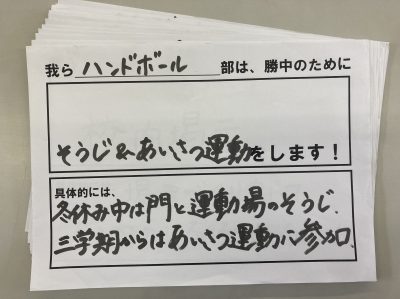 我ら ハンドボール 部は、勝中のために
そうじ&あいさつ運動をします!
具体的には、
冬休み中は門と運動場のそうじ、
三学期からはあいさつ運動に参加、